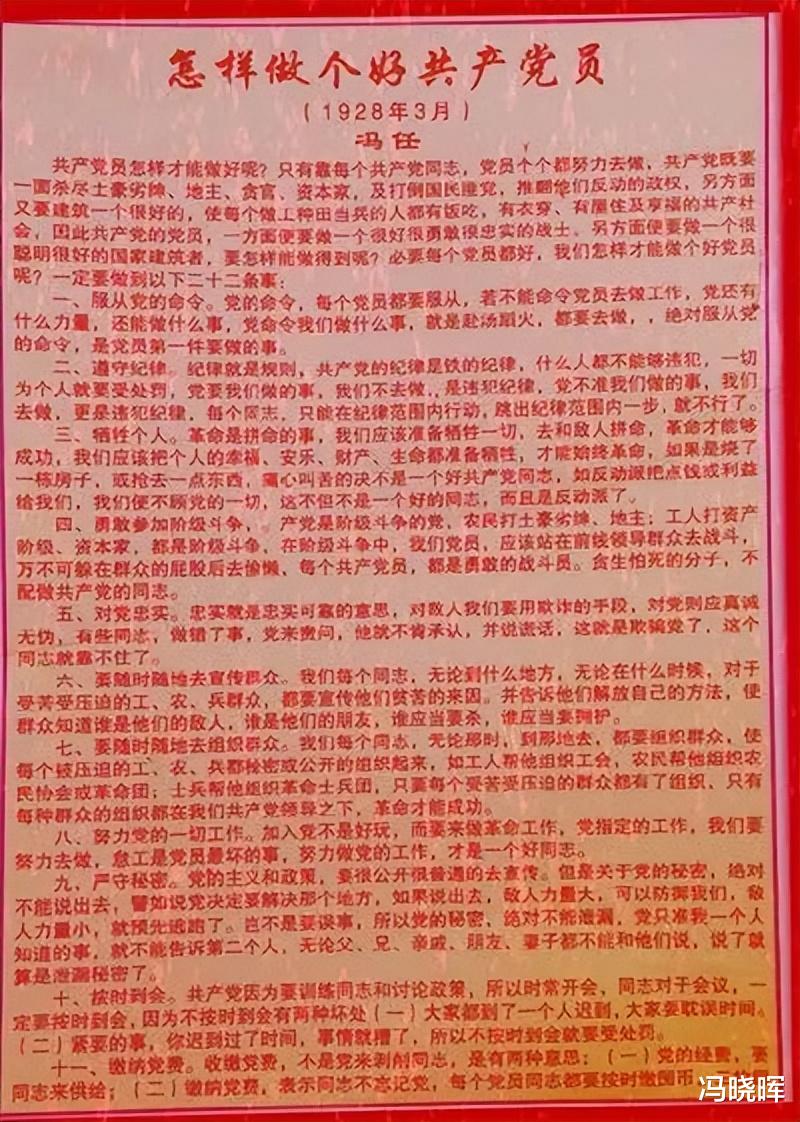 怎样做个好共产党员
（1928年3月）
冯任
共产党员怎样才能做好呢？只有靠每个共产党同志，党员个个都努力去做，共产党既要
一面杀尽土豪劣绅、地主、贪官、资本家，及打倒国民党，推翻他们反动的政权，另方面
又要建筑一个很好的，使每个做工种田当兵的人都有饭吃，有衣穿、有屋住及享福的共产社
会，因此共产党的党员，一方面便要做一个很好很勇敢很忠实的战士。另方面便要做一个很
聪明很好的国家建筑者，要怎样能做得到呢？必要每个党员都好，我们怎样才能做个好党员
呢？一定要做到以下二十二条事：
一、服从党的命令。党的命令，每个党员都要服从，若不能命令党员去做工作，党还有
什么力量，还能做什么事，党命令我们做什么事，就是赴汤蹈火，都要去做，，绝对服从党
的命令，是党员第一件要做的事。
二、遵守纪律。纪律就是规则，共产党的纪律是铁的纪律，什么人都不能够违犯，一切
为个人就要受处罚，党要我们做的事，我们不去做，是违犯纪律，党不准我们做的事，我们
去做，更是违犯纪律，每个同志，只能在纪律范围内行动，跳出纪律范围内一步，就不行了。
三、牺牲个人。革命是拼命的事，我们应该准备牺牲一切，去和敌人拼命，革命才能够
成功，我们应该把个人的幸福、安乐、财产、生命都准备牺牲，才能始终革命，如果是烧了
一栋房子，或抢去一点东西，痛心叫苦的决不是一个好共产党同志，如反动派把点钱或利益
给我们，我们便不顾党的一切，这不但不是一个好的同志，而且是反动派了。
四、勇敢参加阶级斗争， 产党是阶级斗争的党，农民打土豪劣绅、地主；工人打资产
阶级、资本家，都是阶级斗争，在阶级斗争中，我们党员，应该站在前线领导群众去战斗，
万不可躲在群众的屁股后去偷懒、每个共产党员，都是勇敢的战斗员。贪生怕死的分子，不
配做共产党的同志。
五、对党忠实。忠实就是忠实可靠的意思，对敌人我们要用欺诈的手段，对党则应真诚
无伪，有些同志，做错了事，党来责问，他就不肯承认，并说谎话，这就是欺骗党了，这个
同志就靠不住了。
六、要随时随地去宣传群众。我们每个同志，无论到什么地方，无论在什么时候，对于
受苦受压迫的工、农、兵群众，都要宣传他们贫苦的来因。并告诉他们解放自己的方法，使
群众知道谁是他们的敌人，谁是他们的朋友，谁应当要杀，谁应当要拥护。
七、要随时随地去组织群众。我们每个同志，无论那时，到那地去，都要组织群众，使
每个被压迫的工、农、兵都秘密或公开的组织起来，如工人帮他组织工会，农民帮他组织农
民协会或革命团；士兵帮他组织革命士兵团，只要每个受苦受压迫的群众都有了组织、只有
每种群众的组织都在我们共产党领导之下，革命才能成功。
八、努力党的一切工作。加入党不是好玩，而要来做革命工作，党指定的工作，我们要
努力去做，怠工是党员最坏的事，努力做党的工作，才是一个好同志。
九、严守秘密。党的主义和政策，要很公开很普遍的去宣传。但是关于党的秘密，绝对
不能说出去，譬如说党决定要解决那个地方，如果说出去，敌人力量大，可以防御我们，敌
人力量小，就预先逃跑了。岂不是要误事，所以党的秘密，绝对不能泄漏，党只准我一个人
知道的事，就不能告诉第二个人，无论父、兄、亲戚、朋友、妻子都不能和他们说，说了就
算是泄漏秘密了。
十、按时到会。共产党因为要训练同志和讨论政策，所以时常开会，同志对于会议，一
定要按时到会，因为不按时到会有两种坏处（一）大家都到了一个人迟到，大家要耽误时间。
（二）紧要的事，你迟到过了时间，事情就糟了，所以不按时到会就要受处罚。
十一、缴纳党费。收缴党费，不是党来剥削同志，是有两种意思：（一）党的经费，要
同志来供给；（二）缴纳党费，表示同志不忘记党，每个党员同志都要按时缴
冯晓晖